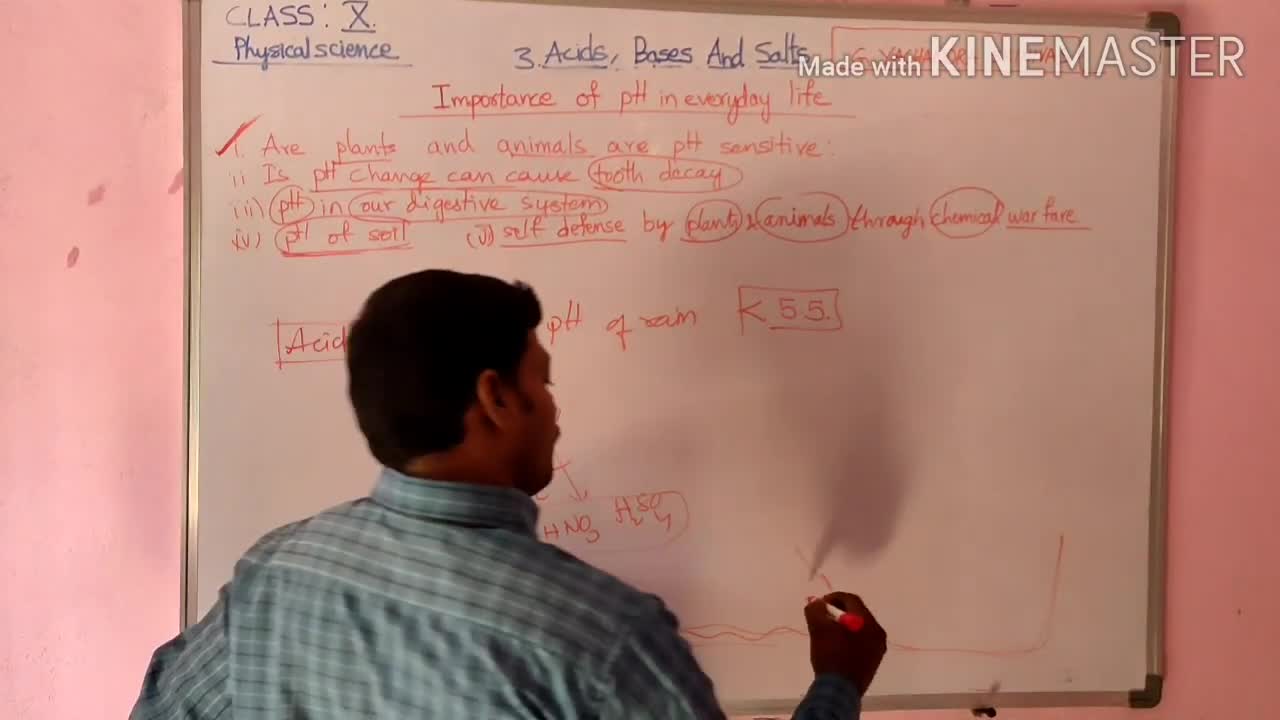 CLASS: X.
Physical science
3. Acids, Bases And Salts
Made with KINEMASTER
Importance of pH in everyday life
i. Are plants and animals are pH sensitive:
ii Is pH change can cause tooth decay
iii) pH in our digestive system
iv) pH of soil (v) self defense by plants & animals through chemical war fare
Acid pH of rain < 5.5.
HNO3 H2SO4